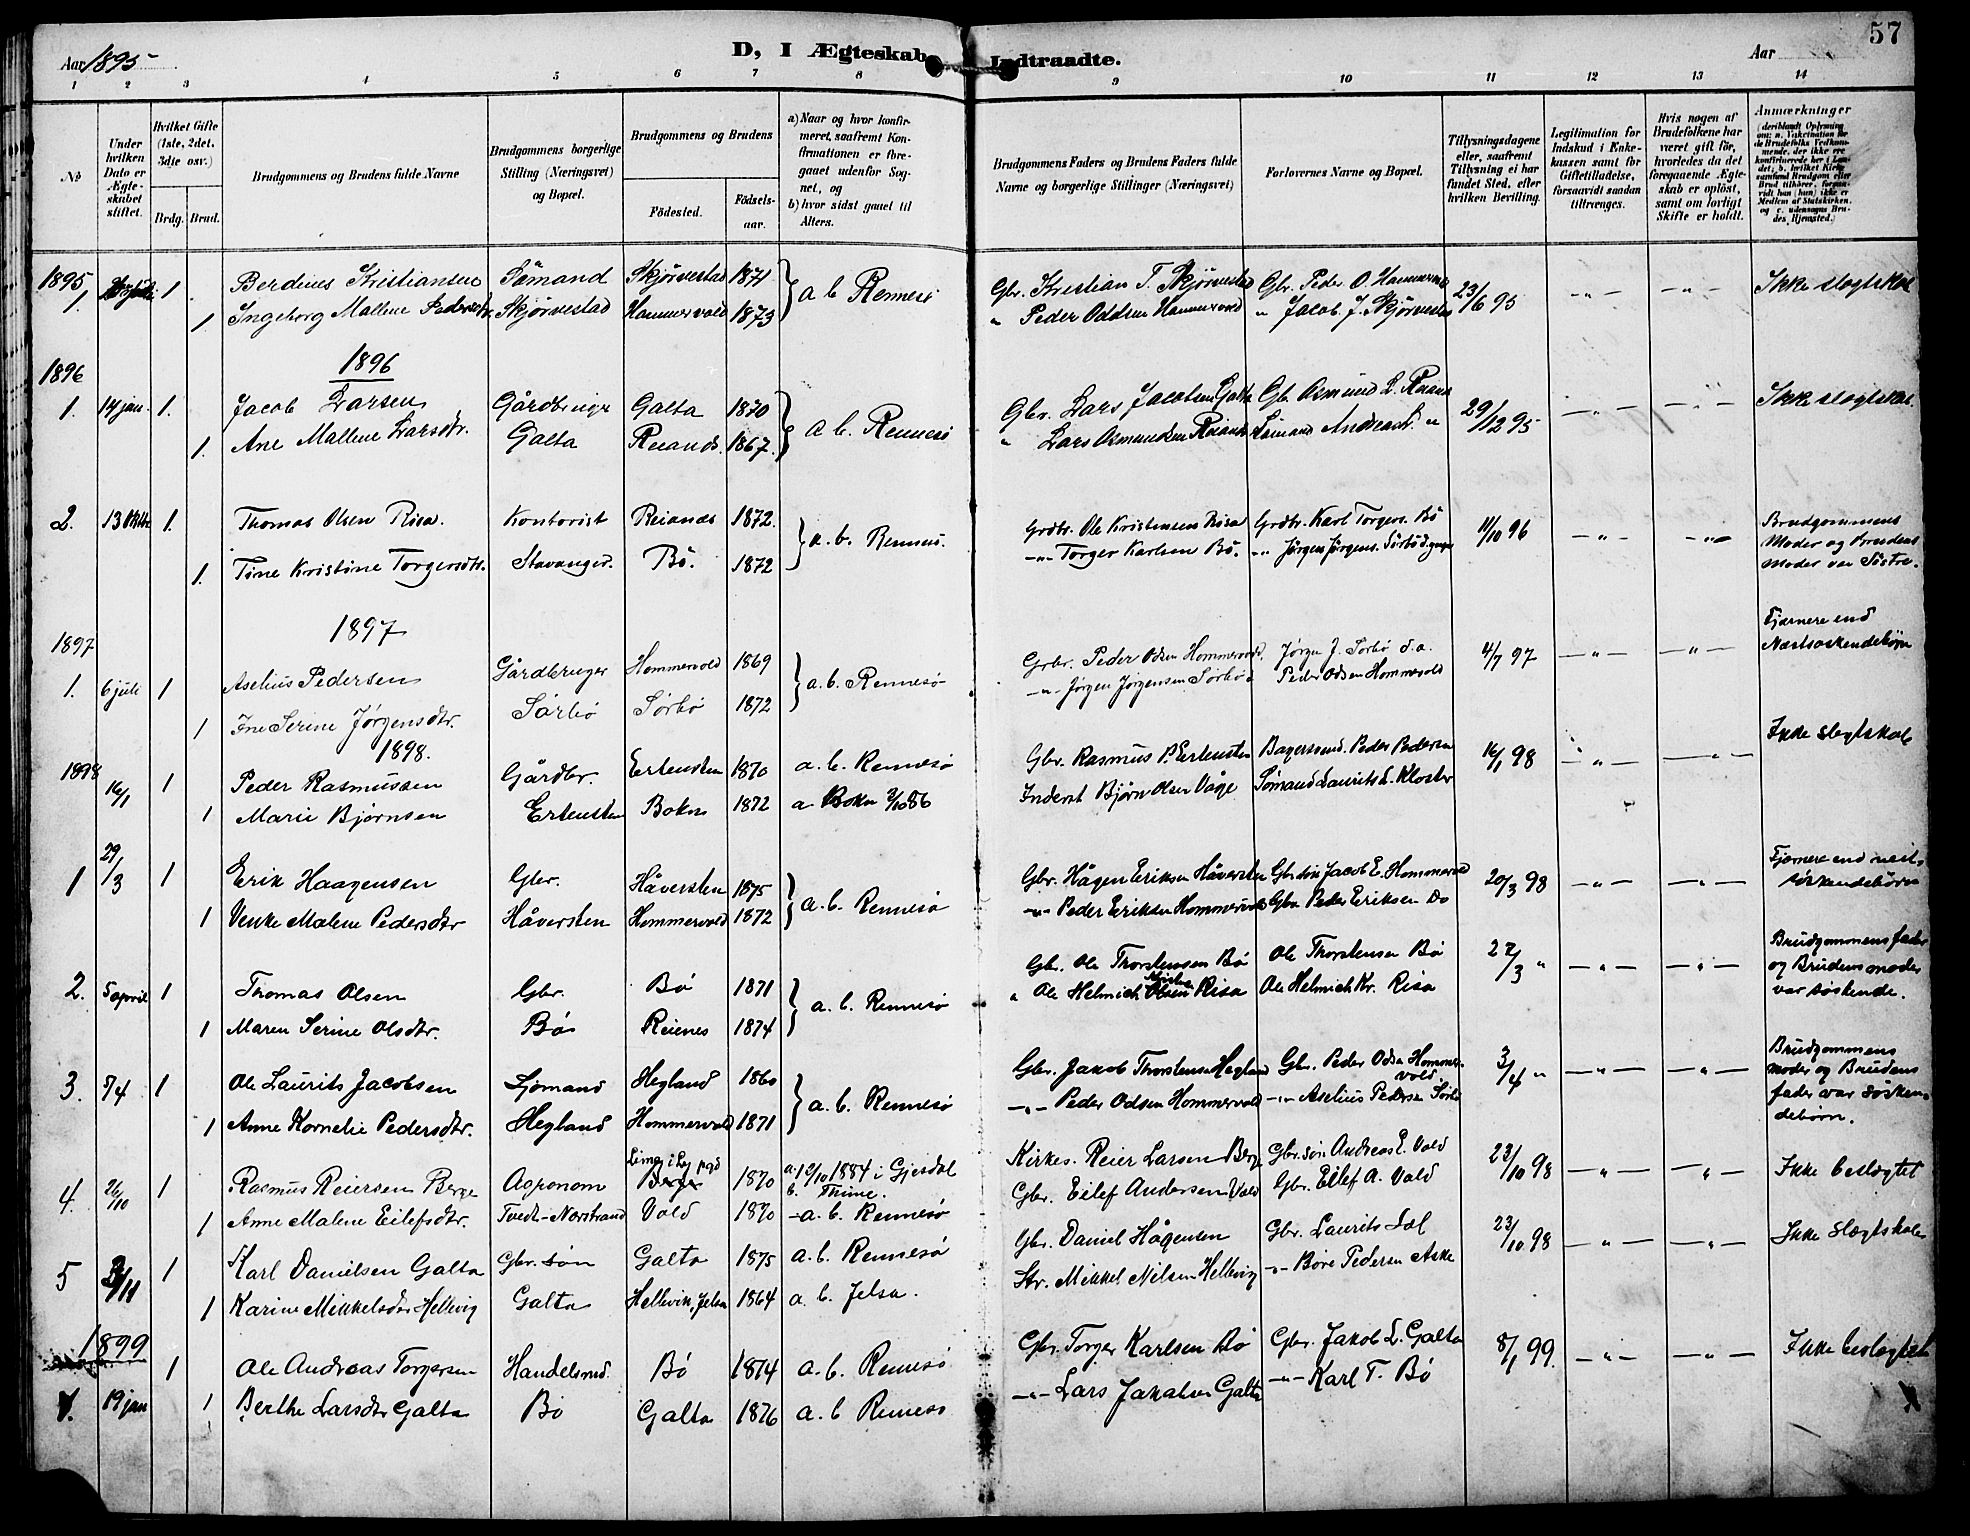 57
Aar 1895
D, I Ægteskab Indtraadte.
Aar
1 2 3 4 5 6 7 8 9 10 11 12 13 14
No
Under hvilken Dato er Ægteskabet stiftet.
Hvilket Gifte (1ste, 2det, 3dje osv.)
Brdg. Brud.
Brudgommens og Brudens fulde Navne
Brudgommens borgerlige Stilling (Næringsvei) og Bopæl.
Brudgommens og Brudens
Fødested.
Fødselsaar.
a) Naar og hvor konfirmeret, saafremt Konfirmationen er foregaaet udenfor Sognet, og
b) hvor sidst gaaet til Alters.
Brudgommens Faders og Brudens Faders fulde Navne og borgerlige Stillinger (Næringsvei)
Forlovernes Navne og Bopæl.
Tillysningsdagene eller, saafremt Tillysning ei har fundet Sted, efter hvilken Bevilling.
Legitimation for Indskud i Enkekassen samt for Giftetilladelse, forsaavidt saadan tiltrænges.
Hvis nogen af Brudefolkene har været gift før, hvorledes da det foregaaende Ægteskab er opløst, samt om lovligt Skifte er holdt.
Anmærkninger
1895
1. 1 Berdines Kristiansen Sømand Skjørvestad 1871 } a b Rennesø Gbr. Kristian T. Skjørvestad Gbr. Peder O. Hammervold 23/6 95 — " — — " — Ikke slegtskab
1 Ingeborg Mallene Pedersdtr. Skjørvestad Hammervold 1873 " Peder Oddsen Hammervold " Jacob J. Skjørvestad
1896 1896
1. 14 jan. 1. Jacob Larsen Gårdbruger Galta 1870 } a b. Rennesø Gbr. Lars Jacobsen Galta Gbr Osmund L. Reiand 29/12 95 — " — — " — Ikke slegtskab.
1. Ane Mallene Larsdtr. Galta Reiands. 1867. " Lars Osmundsen Reiands Sømand Andreas L. "
2. 13 Oktbr 1. Thomas Olsen Risa. Kontorist Reianes 1872. } a. b. Rennes. Grdbr. Ole Kristensen Risa Grdbr. Karl Torgers. Bø 11/10 96 — " — — " — Brudgommens Moder og Brudens Moder var Søstre.
1. Tine Kristine Torgersdtr. Stavanger. Bø. 1872 — " — Torger Karlsen Bø. — " — Jørgen Jørgens. Sørbø d. yngre
1897 1897
1. 6 juli 1 Aselius Pedersen Gårdbruger Hommervold 1869 } a. b. Rennesø Grbr. Peder Odsen Hommervold. Jørgen J. Sørbø d. a. 4/7 97 — " — — " — Fjærnere end Næstsøskendebørn
1 Ine Serine Jørgensdtr. Sørbø Sørbø 1872 — " — Jørgen Jørgensen Sørbø Peder Odsen Hommervold
1898 1898.
16/1 1 Peder Rasmussen Gårdbr. Ertensten 1870 a. b. Rennesø Gbr. Rasmus P. Ertensten Bagersvend. Peder Pedersen 16/1 98 — " — — " — Ikke slegtskab
1 Marie Bjørnsen Ertensten Bokn 1872 a Bokn 3/10 86 Inderst Bjørn Olsen Våge Sømand Laurits L. Kloster
1 29/3 1 Erik Haagensen Gbr. Håversten 1875 } a. b. Rennesø Gbr. Hågen Eriksen Håversten Gbr.søn Jacob E. Hommervold 20/3 98 — " — — " — Fjernere end nestsøskendebørn
1 Venke Malene Pedersdtr Håversten Hommervold 1872 — " — Peder Eriksen Hommervold Gbr Peder Eriksen Do
2. 5 april 1 Thomas Olsen Gbr. Bø 1871 } a. b. Rennesø Gbr. Ole Thorstensen Bø Ole Thorstensen Bø 27/3 " — " — — " — Brudgommens fader og Brudens moder var søskende.
1 Maren Serine Olsdtr. Bø Reienes 1874 " Ole Helmich Olsen Risa Ole Helmich Kr. Risa
3. 5/4 1 Ole Laurits Jacobsen Sjømand Hegland 1860 } a. b. Rennesø Gbr. Jakob Thorstensen Hegland Gbr. Peder Odsen Hommervold 3/4 " — " — — " — Brudgommens moder og Brudens fader var søskendebørn.
1 Anne Kornelie Pedersdtr. Hegland Hommervold 1871 — " — Peder Odsen Hommervold — " — Aselius Pedersen Sørbø
4. 26/10 1 Rasmus Reiersen Berge Agronom Berge 1870 a. 1884 i Gjesdal b. Thime. Kirkes. Reier Larsen Berge Gbr.søn Andreas E. Vold 23/10 98 — " — — " — Ikke beslegtet
1 Anne Malene Eilefsdtr. Tvedt-Nærstrand Vold 1870 — a. b. Rennesø Gbr. Eilef Andersen Vold Gbr. Eilef A. Vold
5 /11 1 Karl Danielsen Galta Gbr. søn Galta 1875 a. b. Rennesø Gbr. Daniel Hågensen Gbr. Laurits Dal 23/10 98 — " — — " — Ikke Slegtskab
1 Karine Mikkelsdtr Hellevig Galta Hellevik, Jelsa 1864 a. b. Jelsa. Str. Mikkel Nilsen Hellevig — " — Børe Pedersen Aske
1899
1. 19 jan 1 Ole Andreas Torgersen Handelsmd. Bø 1874 a. b. Rennesø Gbr. Torger Karlsen Bø Gbr. Jakob L. Galta 8/1 99 — " — — " — Ikke beslegtet
1 Berthe Larsdtr Galta Bø Galta 1876 a. b Rennesø — " — Lars Jakobsen Galta — " — Karl T. Bø